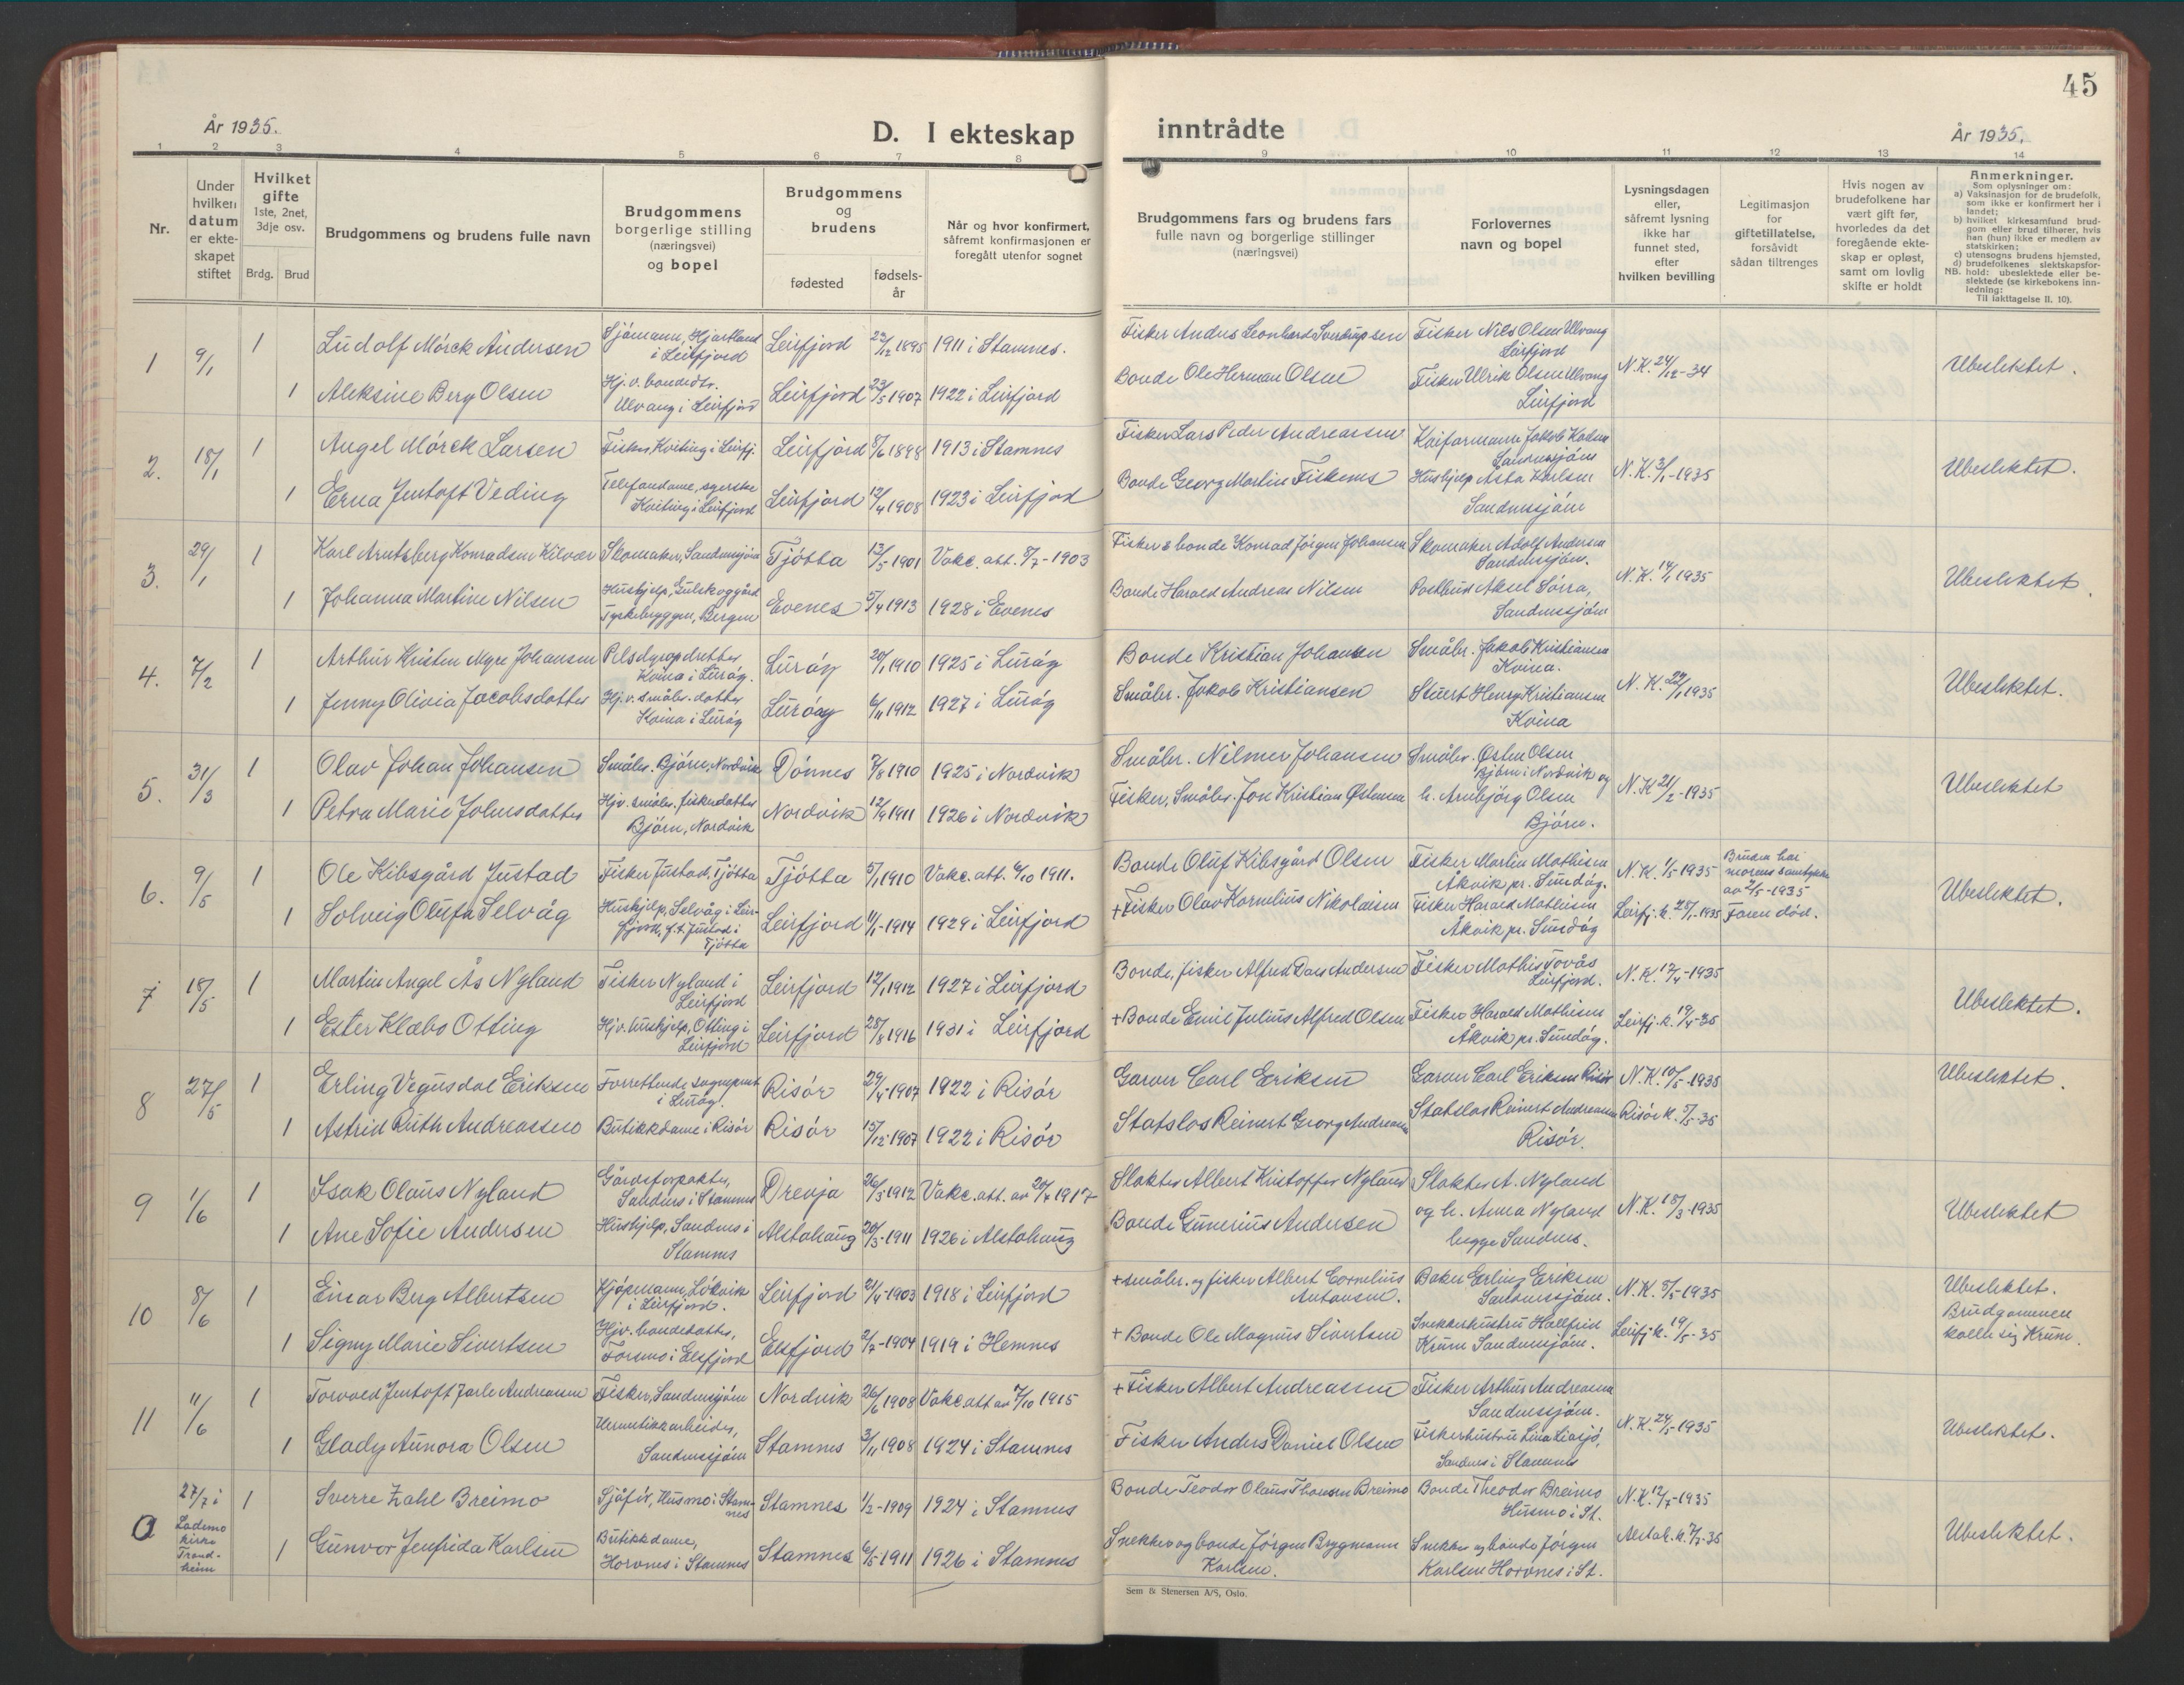 45
År 1935.
D. I ekteskap
inntrådte
År 1935.
1 2 3 4 5 6 7 8 9 10 11 12 13 14
Nr.
Under hvilken datum er ekteskapet stiftet
Hvilket gifte 1ste, 2net, 3dje osv.
Brdg. Brud
Brudgommens og brudens fulle navn
Brudgommens borgerlige stilling (næringsvei) og bopel
Brudgommens og brudens
fødested
fødselsår
Når og hvor konfirmert, såfremt konfirmasjonen er foregått utenfor sognet
Brudgommens fars og brudens fars fulle navn og borgerlige stillinger (næringsvei)
Forlovernes navn og bopel
Lysningsdagen eller, såfremt lysning ikke har funnet sted, efter hvilken bevilling
Legitimasjon for giftetillatelse, forsåvidt sådan tiltrenges
Hvis nogen av brudefolkene har vært gift før, hvorledes da det foregående ekteskap er opløst, samt om lovlig skifte er holdt
Anmerkninger.
Som oplysninger om:
a) Vaksinasjon for de brudefolk, som ikke er konfirmert her i landet;
b) hvilket kirkesamfund brudgom eller brud tilhører, hvis han (hun) ikke er medlem av statskirken;
c) utensogns brudens hjemsted,
d) brudefolkenes slektskapsforhold: ubeslektede eller beslektede (se kirkebokens innledning:
NB. Til iakttagelse II. 10).
1 9/1 1 Ludolf Mörck Andersen Sjömann, Hjartland i Leirfjord Leirfjord 22/12 1895 1911 i Stamnes. Fisker Anders Leonhard Sverdrupsen Fisker Nils Olsen Ulvang Leirfjord N.K. 24/12-34 Ubeslektet.
1 Aleksine Berg Olsen Hj. v. bondedtr. Ulvang i Leirfjord Leirfjord 23/5 1907 1922 i Leirfjord Bonde Ole Herman Olsen Fisker Ulrik Olsen Ulvang Leirfjord
2. 18/1 1 Angel Mörck Larsen Fisker, Kviting i Leirfj. Leirfjord 8/6 1898 1913 i Stamnes Fisker Lars Peder Andreassen Kaiformann Jakob Sandnessjöen N.K. 3/1-1935 Ubeslektet.
1 Erna Jentoft Veding Telefondame, syerske Kviting i Leirfjord Leirfjord 12/4 1908 1923 i Leirfjord Bonde Georg Martin Fiskenes Hushjelp Asta Karlsen Sandnessjöen
3. 29/1 1 Karl Arntsberg Konradsen Kilvær Skomaker, Sandnessjöen Tjötta 13/5 1901 Vakc. att. 8/7-1903 Fisker & bonde Konrad Jörgen Johansen Skomaker Adolf Andersen Sandnessjöen. N.K. 14/1 1935 Ubeslektet.
1 Johanna Martine Nilsen Hushjelp, Gulskoggård Tyskebryggen, Bergen Evenes 5/4 1913 1928 i Evenes Bonde Harald Andreas Nilsen Postbud Aksel Sörra, Sandnessjöen
4. 7/2 1 Arthur Kristen Myre Johansen Pelsdyropdretter Kvina i Luröy. Luröy 20/1 1910 1925 i Luröy Bonde Kristian Johansen Småbr. Jakob Kristiansen Kvina. N.K. 22/1 1935 Ubeslektet.
1 Jenny Olivia Jacobsdatter Hj. v. småbr. datter Kvina i Luröy Luröy 6/11 1912 1927 i Luröy Småbr. Jakob Kristiansen Stuert Henry Kristiansen Kvina
5. 31/3 1 Olav Johan Johansen Småbr. Björn, Nordvik Dönnes 7/8 1910 1925 i Nordvik Småbr. Nilmer Johansen Småbr. Østen Olsen Björn i Nordvik og N.K. 21/2-1935 Ubeslektet
1 Petra Marie Johnsdatter Hjv. småbr. fiskerdatter Björn, Nordvik Nordvik 12/9 1911 1926 i Nordvik Fisker, Småbr. Jon Kristian Østensen h. Arnbjörg Olsen Björn.
6. 9/5 1 Ole Kibsgård Justad Fisker Justad, Tjötta Tjötta 5/1 1910 Vakc. att. 6/10 1911. Bonde Oluf Kibsgård Olsen Fisker Martin Mathisen Åkvik pr. Sundöy. N.K. 1/5-1935 Bruden har morens samtykke av 2/5-1935 Ubeslektet.
1 Solveig Olufa Selvåg Hushjelp, Selvåg i Leirfjord, f.t. Justad i Tjötta Leirfjord 11/1-1914 1929 i Leirfjord + Fisker Olav Kornelius Nikolaisen Fisker Harald Mathisen Åkvik pr. Sundöy Leirfj. k. 28/1-1935 Faren död.
7 18/5 1 Martin Angel Ås Nyland Fisker Nyland i Leirfjord Leirfjord 12/1 1912 1927 i Leirfjord Bonde, fisker Alfred Dass Andersen Fisker Mathis Tovås Leirfjord. N.K. 12/4-1935 Ubeslektet.
1 Ester Klæbo Otting Hj v. hushjelp, Otting i Leirfjord Leirfjord 28/8 1916 1931 i Leirfjord + Bonde Emil Julius Alfred Olsen Fisker Harald Mathisen Åkvik pr. Sundöy. Leirfj. k. 19/4-35
8 27/5 1 Erling Vegusdal Eriksen Forrettende sogneprest i Luröy. Risör 29/4-1907 1922 i Risör Garver Carl Eriksen Garver Carl Eriksen Risör N.K. 10/5-1935 Ubeslektet.
1 Astrid Ruth Andreassen Butikkdame i Risör Risör 15/12-1907 1922 i Risör Statslos Reinert Georg Andreassen Statslos Reinert Andreassen Risör. Risör k. 5/5-35
9 1/6 1 Isak Olaus Nyland Gårdsforpakter, Sandnes i Stamnes Drevja 26/3 1912 Vakc. att. av 20/7 1917 Slakter Albert Kristoffer Nyland Slakter A. Nyland N.K. 18/3-1935 Ubeslektet
1 Ane Sofie Andersen Hushjelp, Sandnes i Stamnes Alstahaug 20/3-1911 1926 i Alstahaug Bonde Gunerius Andersen og h. Anna Nyland begge Sandnes.
10 8/6 1 Einar Berg Albertsen Kjöpmann, Lökvik i Leirfjord. Leirfjord 21/4-1903 1918 i Leirfjord + småbr. og fisker Albert Cornelius Antonsen. Baker Erling Eriksen Sandnessjöen. N.K. 8/5-1935 Ubeslektet. Brudgommen kaller sig Krum.
1 Signy Marie Sivertsen Hjv. bondedatter, Forsmo i Elsfjord Elsfjord 2/7-1904 1919 i Hemnes + Bonde Ole Magnus Sivertsen Snekkerhustru Hallfrid Krum Sandnessjöen. Leirfj. k. 19/5-35
11 11/6 1 Torvald Jentoft Jarle Andreassen Fisker, Sandnessjöen Nordvik 26/6 1908 Vakc. att av 7/10 1915 + Fisker Albert Andreassen Fisker Arthur Andreassen Sandnessjöen. N.K. 24/5-1935 Ubeslektet.
1 Glady Aunora Olsen Hermetikkarbeider, Sandnessjöen Stamnes 3/11 1908 1924 i Stamnes Fisker Anders Daniel Olsen Fiskerhustru Lina Liasjö, Sandnes i Stamnes
0 27/7 i Lademo kirke Trondheim 1 Sverre Zahl Breimo Sjåför, Husmo i Stamnes Stamnes 1/2-1909 1924 i Stamnes Bonde Teodor Olaus Thomsen Breimo Bonde Theodor Breimo Husmo i St. N.K. 12/7-1935 Ubeslektet.
1 Gunvor Jenfrida Karlsen Butikkdame, Horvnes i Stamnes Stamnes 6/5-1911 1926 i Stamnes Snekker og bonde Jörgen Brygmann Karlsen. Snekker og bonde Jörgen Karlsen Horvnes i St. Alstah. k. 7/7-35
Sem & Stenersen A/S, Oslo.